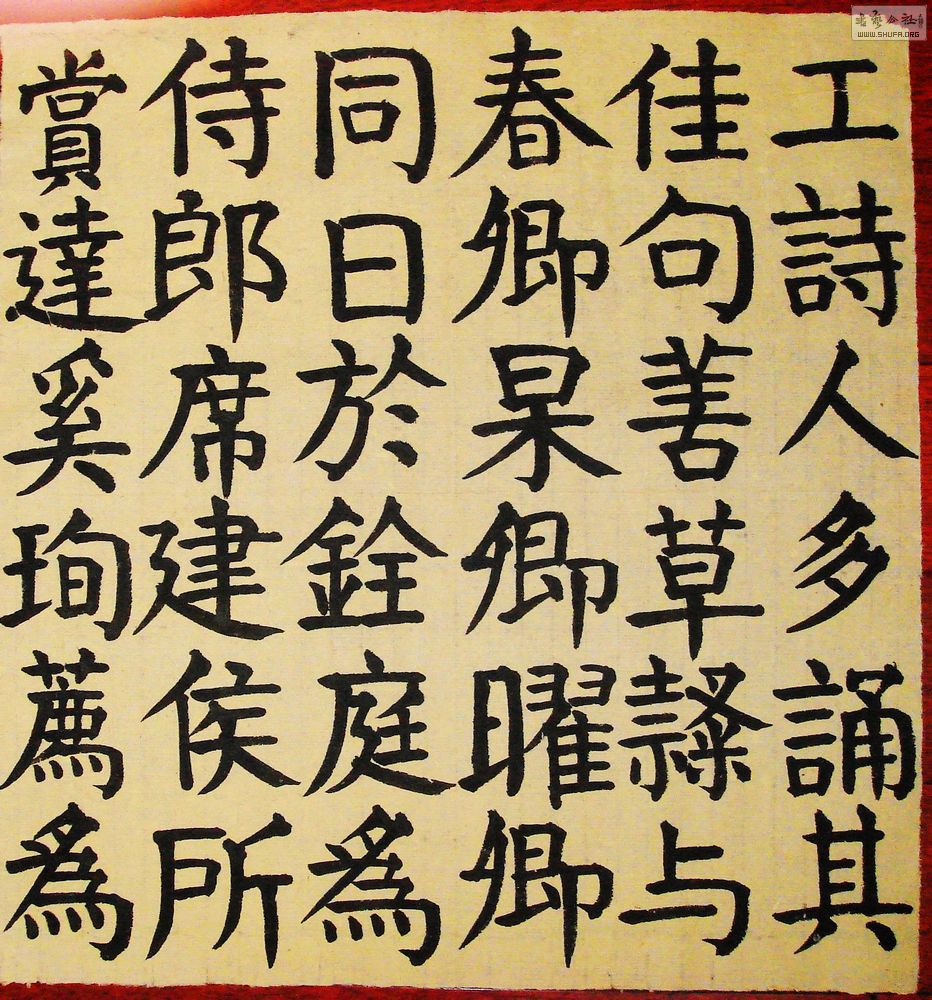 工詩人多誦其
佳句善草隸与
春卿杲卿曜卿
同日於銓庭為
侍郎席建侯所
賞達奚珣薦為
WWW.SHUFA.ORG